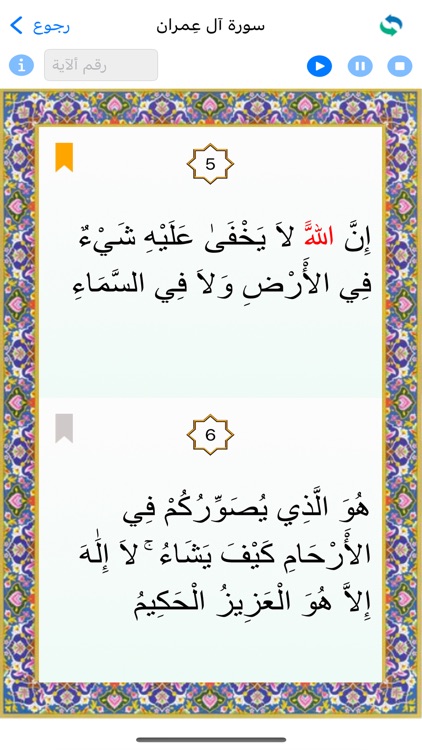 سورة آل عِمران
رجوع
رقم ألآية
5
إِنَّ اللَّهَ لاَ يَخْفَىٰ عَلَيْهِ شَيْءٌ
فِي الأَرْضِ وَلاَ فِي السَّمَاءِ
6
هُوَ الَّذِي يُصَوِّرُكُمْ فِي
الأَرْحَامِ كَيْفَ يَشَاءُ ۚ لاَ إِلَٰهَ
إِلاَّ هُوَ الْعَزِيزُ الْحَكِيمُ